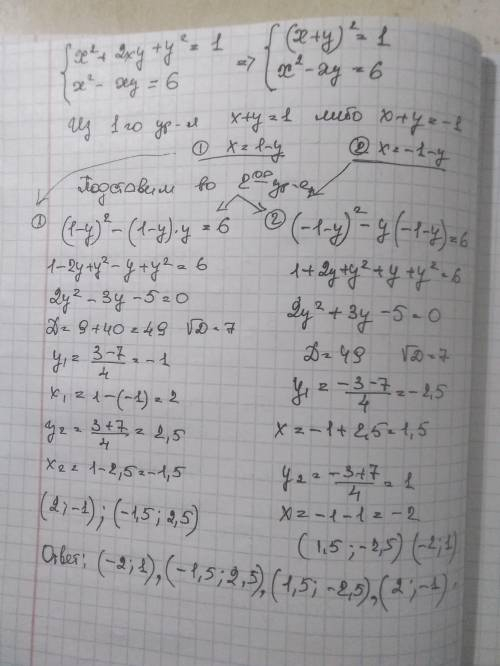 { x² + 2xy + y² = 1 => { (x+y)² = 1
{ x² - xy = 6 { x² - xy = 6
Из 1го ур-я x+y=1 либо x+y=-1
① x=1-y ② x=-1-y
Подставим во 2ое ур-е
① (1-y)² - (1-y)·y = 6
1-2y+y²-y+y²=6
2y²-3y-5=0
D=9+40=49 √D=7
y₁ = (3-7)/4 = -1
x₁ = 1-(-1) = 2
y₂ = (3+7)/4 = 2,5
x₂ = 1-2,5 = -1,5
(2;-1); (-1,5; 2,5)
② (-1-y)² - y(-1-y) = 6
1+2y+y²+y+y²=6
2y²+3y-5=0
D=49 √D=7
y₁ = (-3-7)/4 = -2,5
x = -1+2,5 = 1,5
y₂ = (-3+7)/4 = 1
x = -1-1 = -2
(1,5; -2,5) (-2;1)
Ответ: (-2;1), (-1,5; 2,5), (1,5; -2,5), (2;-1).